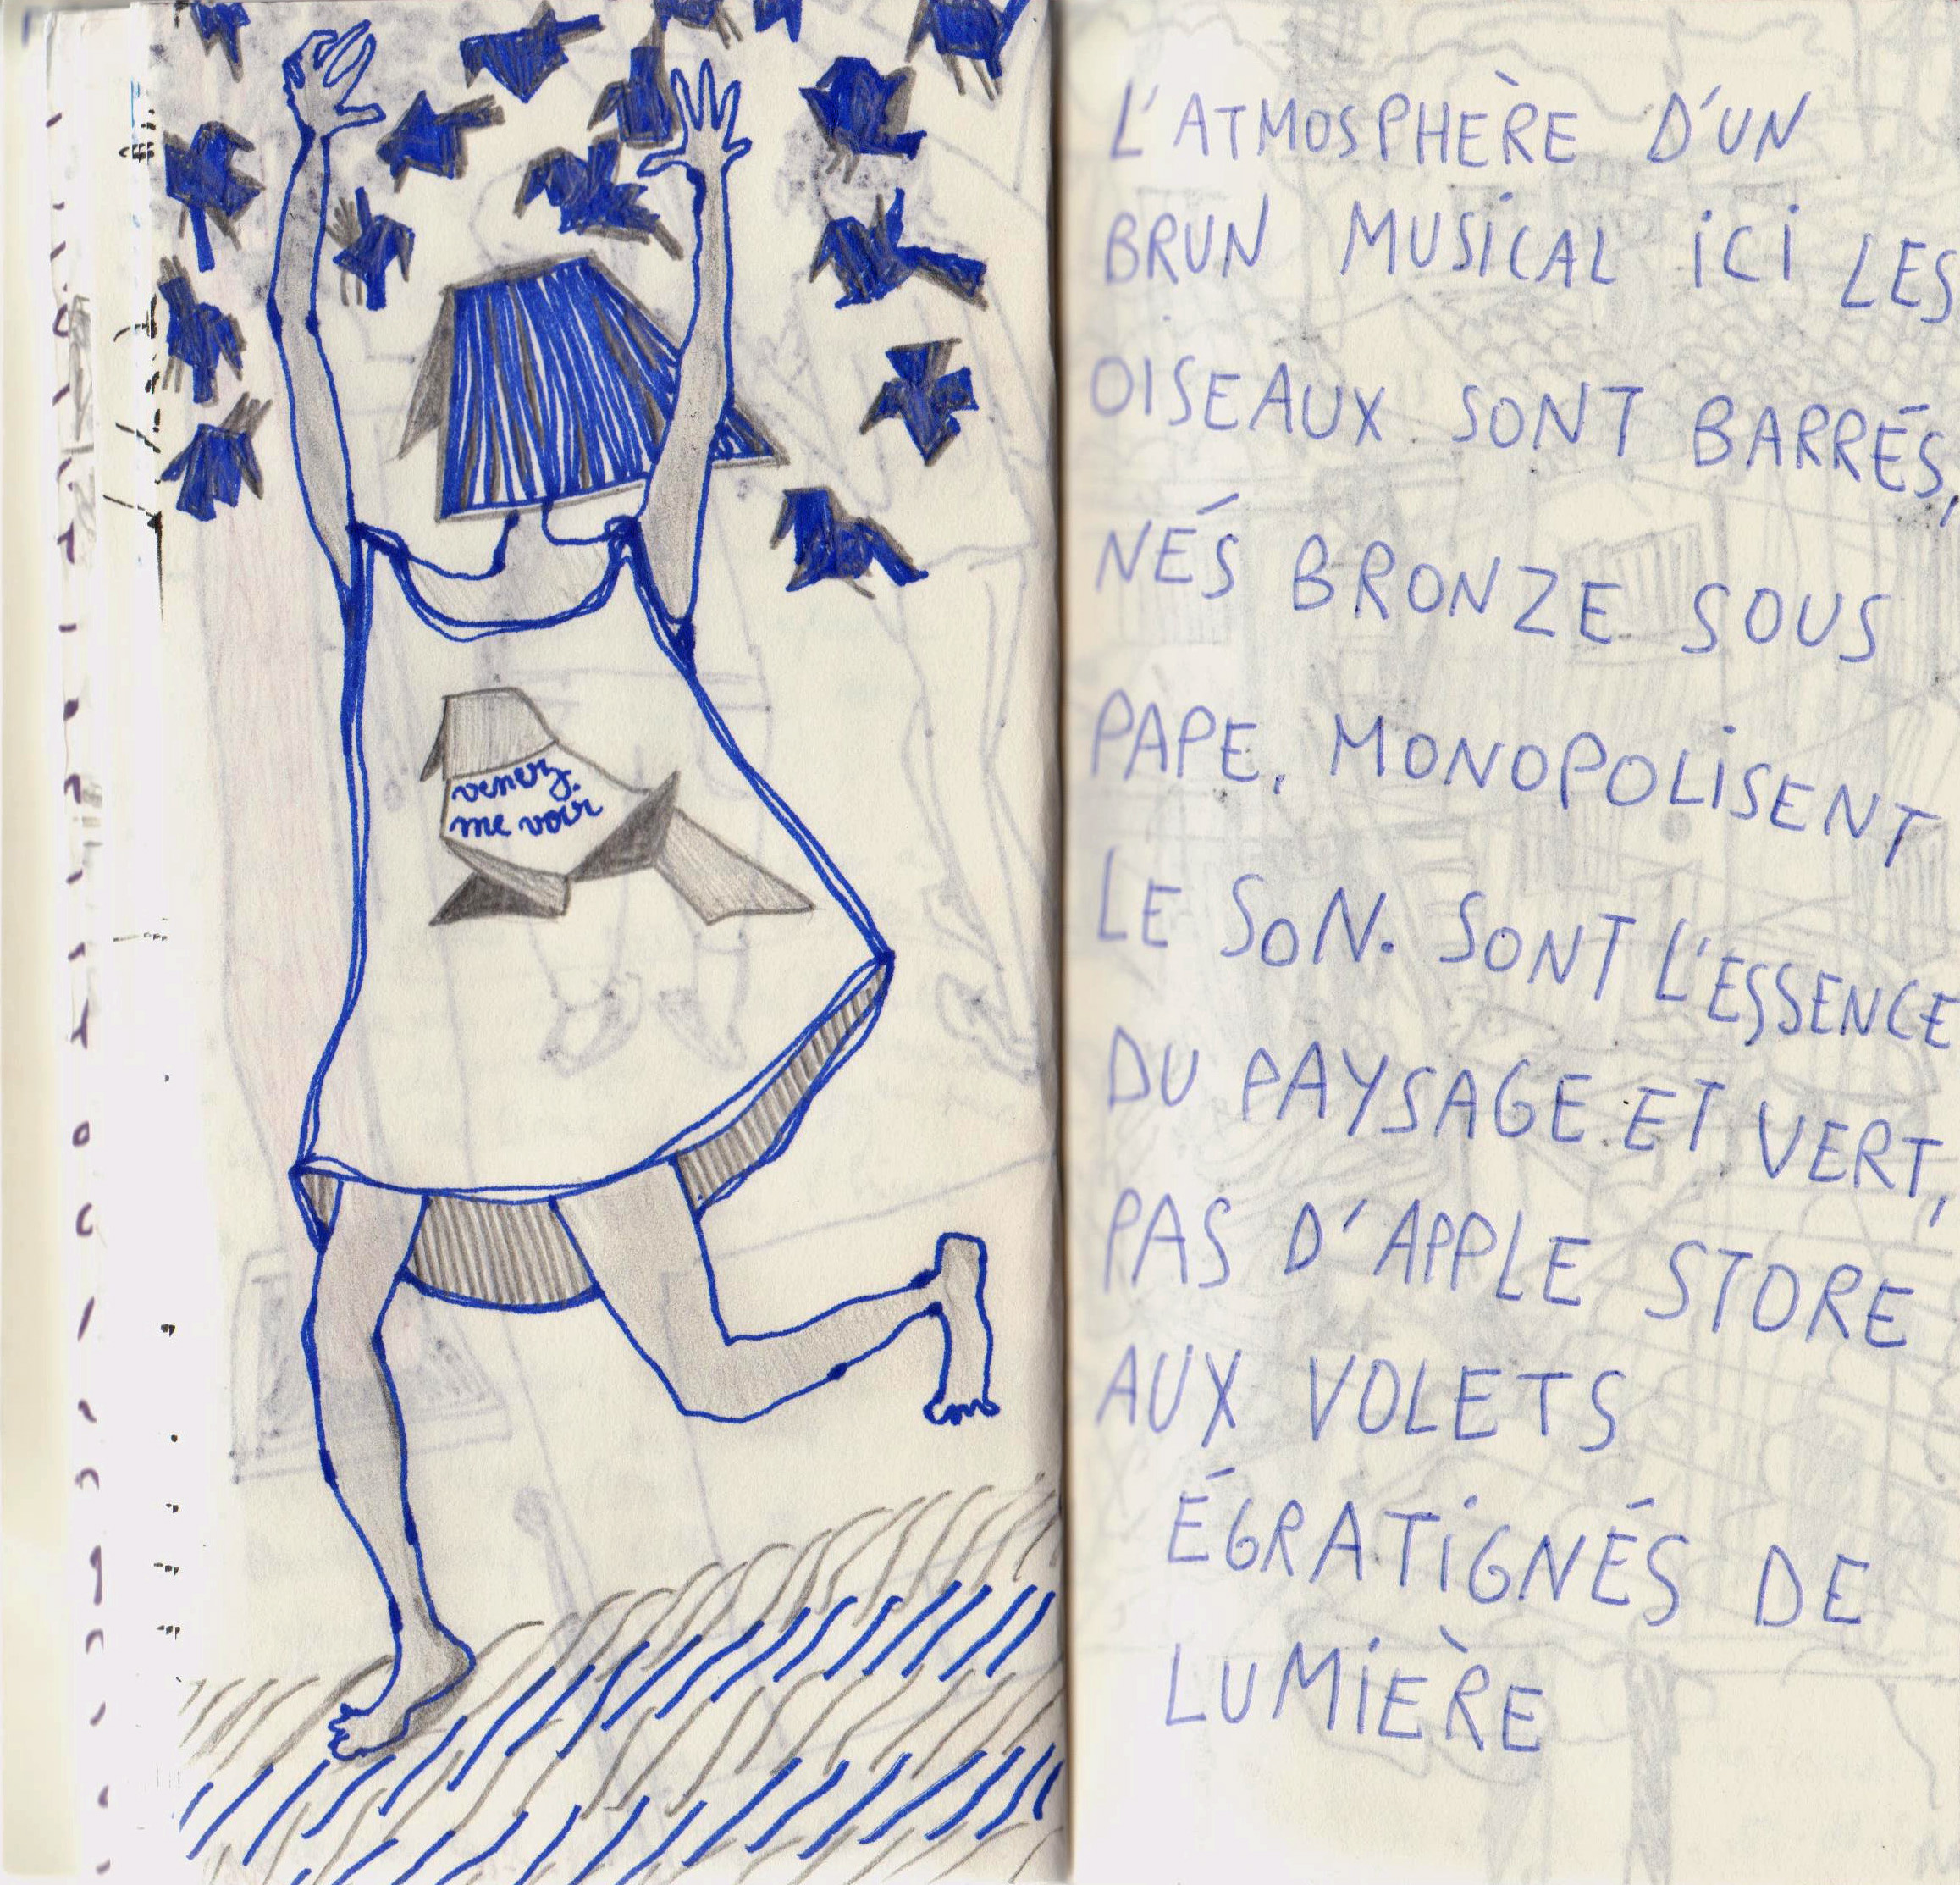 venez
me voir
L'ATMOSPHÈRE D'UN
BRUN MUSICAL ICI LES
OISEAUX SONT BARRÉS,
NÉS BRONZE SOUS
PAPE. MONOPOLISENT
LE SON. SONT L'ESSENCE
DU PAYSAGE ET VERT,
PAS D'APPLE STORE
AUX VOLETS
ÉGRATIGNÉS DE
LUMIÈRE